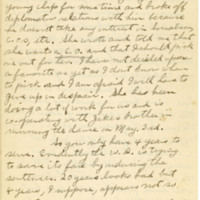 young chap for some time and broke off
diplomatic relations with him because
he doesn't take any interest in
C.O.s, etc. She wrote and told me that
she wants a C.O. and that I should pick
one out for her. I have not decided upon
a favorite as yet as I don't know whom
to pick and I am afraid I will have to
give up in despair. She has been
doing a lot of work for us and is
cooperating with Jake's brother
running the dance on May 2nd.
So you only have 4 years to
serve. Evidently the W. D. is trying
to save its face by reducing the
sentences. 20 years looks bad but
4 years, I suppose, appears not as